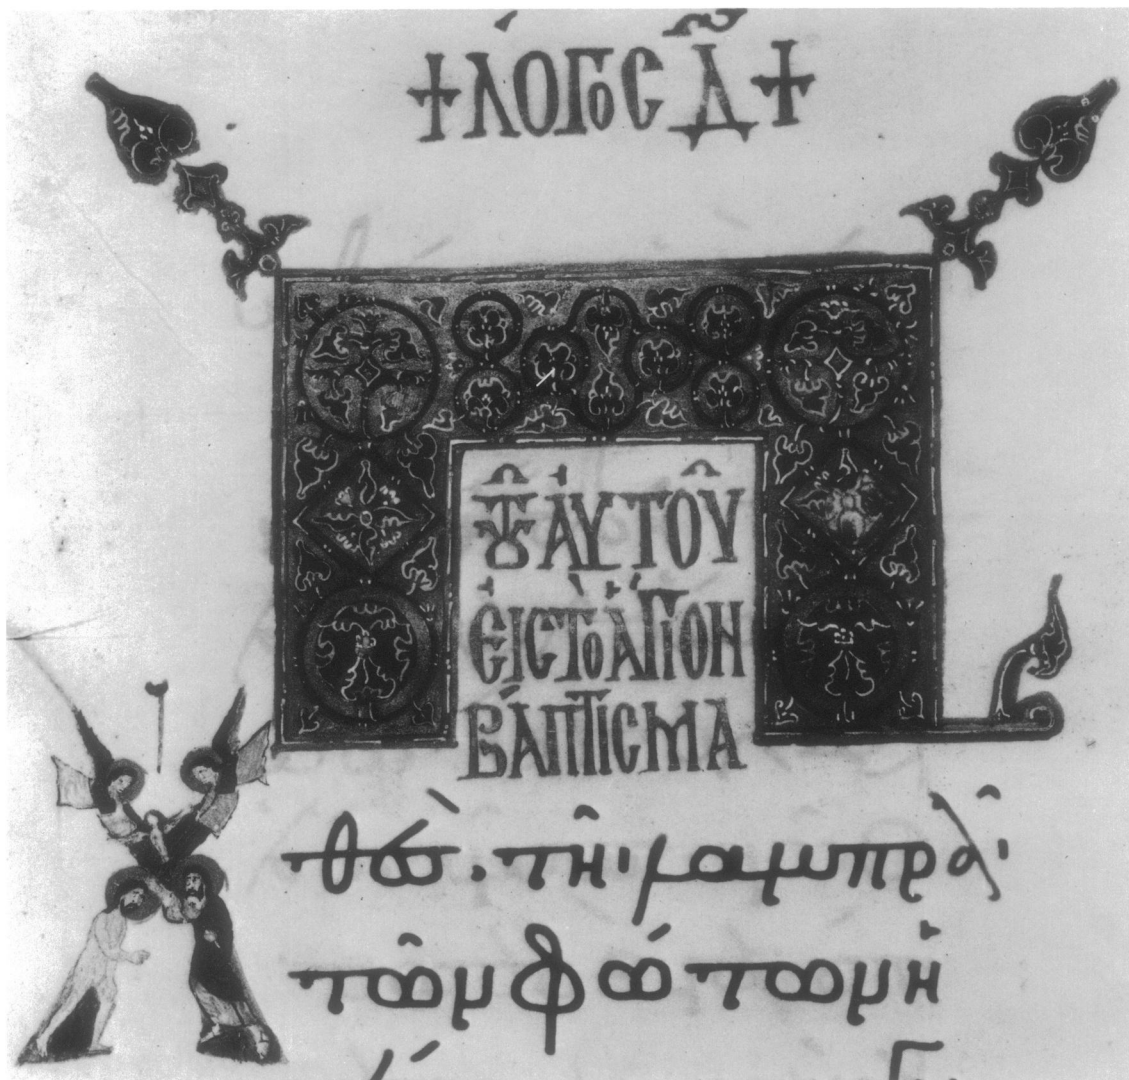 + ΛΟΓΟC Δ̄ +
ΤΟΥ͂ ἈΥΤΟΥ͂
ἘΙC ΤῸ ἍΓΙΟΝ
ΒΆΠΤΙCΜΑ
Χθὲς· τῆι λαμπρᾶι
τῶν φώτων ἡ